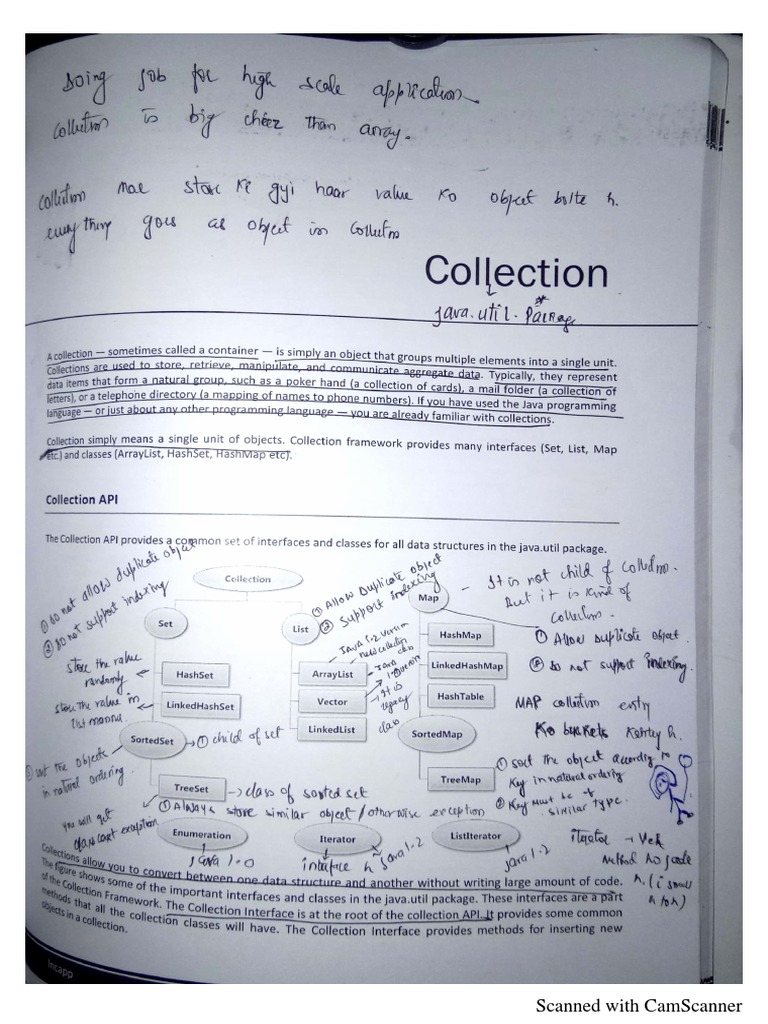 Doing job for high scale application.
Collection is big cheez than array.
Collection mae store ki gyi haar value ko object bolte h.
every thing goes as object in Collection
Collection
java.util.package
A collection — sometimes called a container — is simply an object that groups multiple elements into a single unit.
Collections are used to store, retrieve, manipulate, and communicate aggregate data. Typically, they represent
data items that form a natural group, such as a poker hand (a collection of cards), a mail folder (a collection of
letters), or a telephone directory (a mapping of names to phone numbers). If you have used the Java programming
language — or just about any other programming language — you are already familiar with collections.
Collection simply means a single unit of objects. Collection framework provides many interfaces (Set, List, Map
etc.) and classes (ArrayList, HashSet, HashMap etc).
Collection API
The Collection API provides a common set of interfaces and classes for all data structures in the java.util package.
① do not allow duplicate object
② do not support indexing
Collection
① Allow Duplicate object
② Support indexing
Map
- It is not child of collection.
But it is kind of
collection.
Set
List
Java 1.2 version
new collection
HashMap
① Allow duplicate object.
store the value
randomly
HashSet
ArrayList
Java
LinkedHashMap
② do not support indexing.
store the value in
list manner.
LinkedHashSet
Vector
It is
legacy
class
HashTable
MAP collection entry
Ko buckets
h.
LinkedList
SortedSet
① child of set
SortedMap
the objects
in natural ordering.
① sort the object according to
Key in natural ordering
TreeSet
class of sorted set
TreeMap
② Key must be of
similar type.
you will get
class cast exception
① Always store similar object / otherwise exception
Enumeration
Iterator
ListIterator
Java 1.0
interface h
java 1.2
java 1.2
iterator
method
h. (i small
Collections allow you to convert between one data structure and another without writing large amount of code.
The figure shows some of the important interfaces and classes in the java.util package. These interfaces are a part
of the Collection Framework. The Collection Interface is at the root of the collection API. It provides some common
methods that all the collection classes will have. The Collection Interface provides methods for inserting new
objects in a collection.
Incapp
Scanned with CamScanner